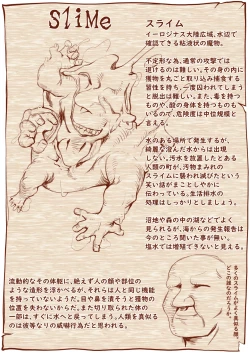 SliMe
スライム
イーロジナス大陸広域、水辺で
確認できる粘液状の魔物。
不定形な為、通常の攻撃では
退けるのは難しい。その身の内に
獲物を丸ごと取り込み捕食する
習性を持ち、一度囚われてしまう
と脱出は難しい。また、毒を持つ
ものや、酸の身体を持つものも
いるので、危険度は中位規模と
言える。
水のある場所で発生するが、
綺麗な澄んだ水からは出現
しない。汚水を放置したとある
人間の町が、汚物まみれの
スライムに襲われ滅びたという
笑い話がまことしやかに
伝わっている。生活排水の
処理はしっかりとしましょう。
沼地や森の中の湖などでよく
見られるが、海からの発生報告は
今のところ聞いた事が無い。
塩水では増殖できないと見える。
流動的なその体躯に、絶えず人の顔や部位の
ような造形を浮かべるが、それらは人と同じ機能
を持っていないようだ。目や鼻を潰そうと獲物の
位置を失わないからだ。また切り取られた体の
一部は、すぐに水へと戻ってしまう。人間を真似る
のは彼等なりの威嚇行為だと思われる。
多くのスライムがよく真似る顔。
この顔は誰なのだろうか。